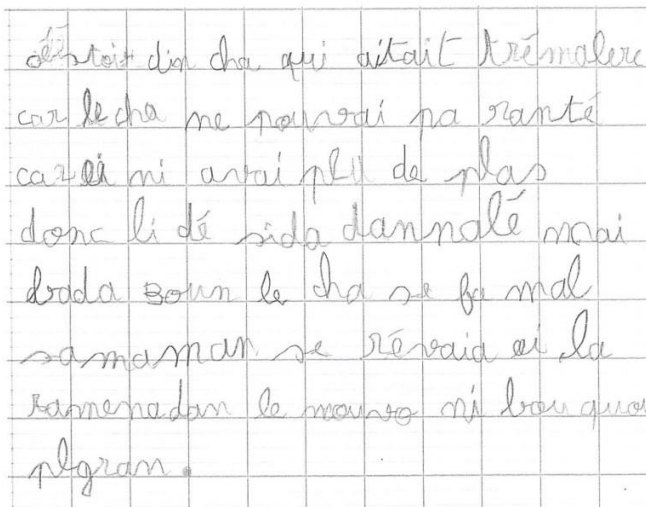 c'éstoit din cha qui aitait trémalere
car le cha ne pouvrai pa ranté
car ei ni avai pli de plas
donc li dé sida dannalé mai
drada boun le cha se fa mal
samaman se révaia ei la
ramenadan le nouvo ni bou quou
plgran.